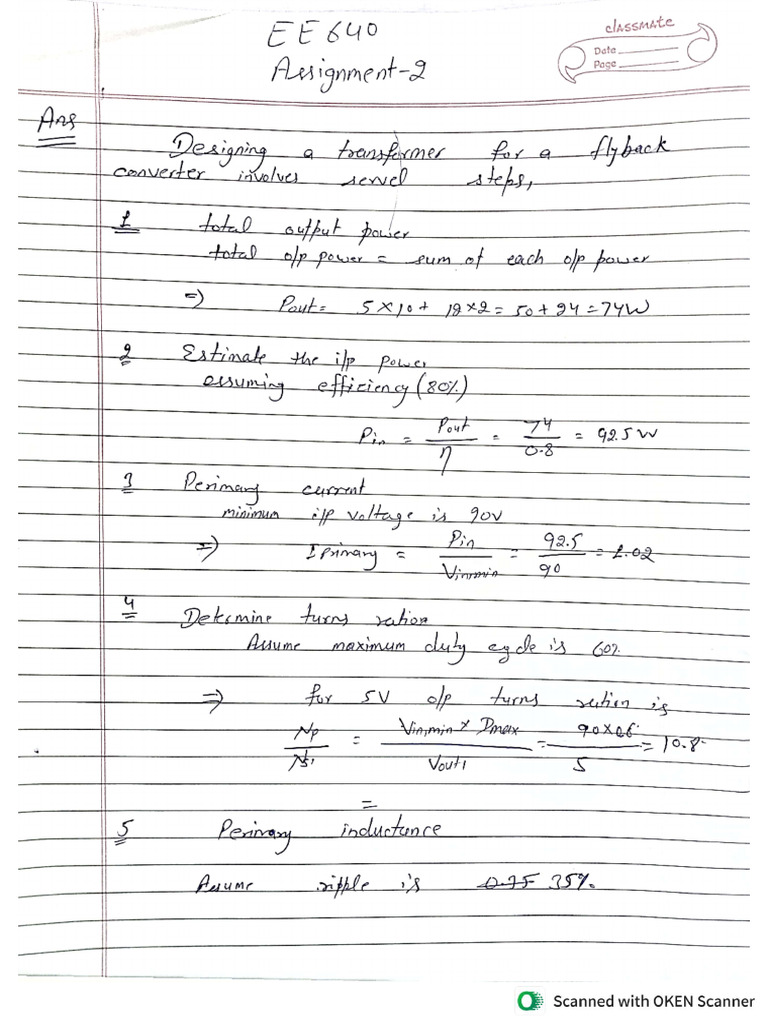 EE640
Assignment-2
classmate
Date
Page
Ans
Designing a transformer for a flyback
converter involves servel steps,
1 total output power
total o/p power = sum of each o/p power
=> Pout = 5×10+ 12×2 = 50+24 = 74W
2 Estimate the i/p power
assuming efficiency (80%)
Pin = Pout/η = 74/0.8 = 92.5W
3 Perimary current
minimum i/p voltage is 90V
=> Iprimary = Pin/Vin,min = 92.5/90 = 1.02
4 Determine turns ration
Assume maximum duty cycle is 60%
=> for 5V o/p turns ration is
Np/Ns1 = Vin,min × Dmax/Vout1 = 90×0.6/5 = 10.8
=
5 Perimary inductance
Assume ripple is 35%.
Scanned with OKEN Scanner